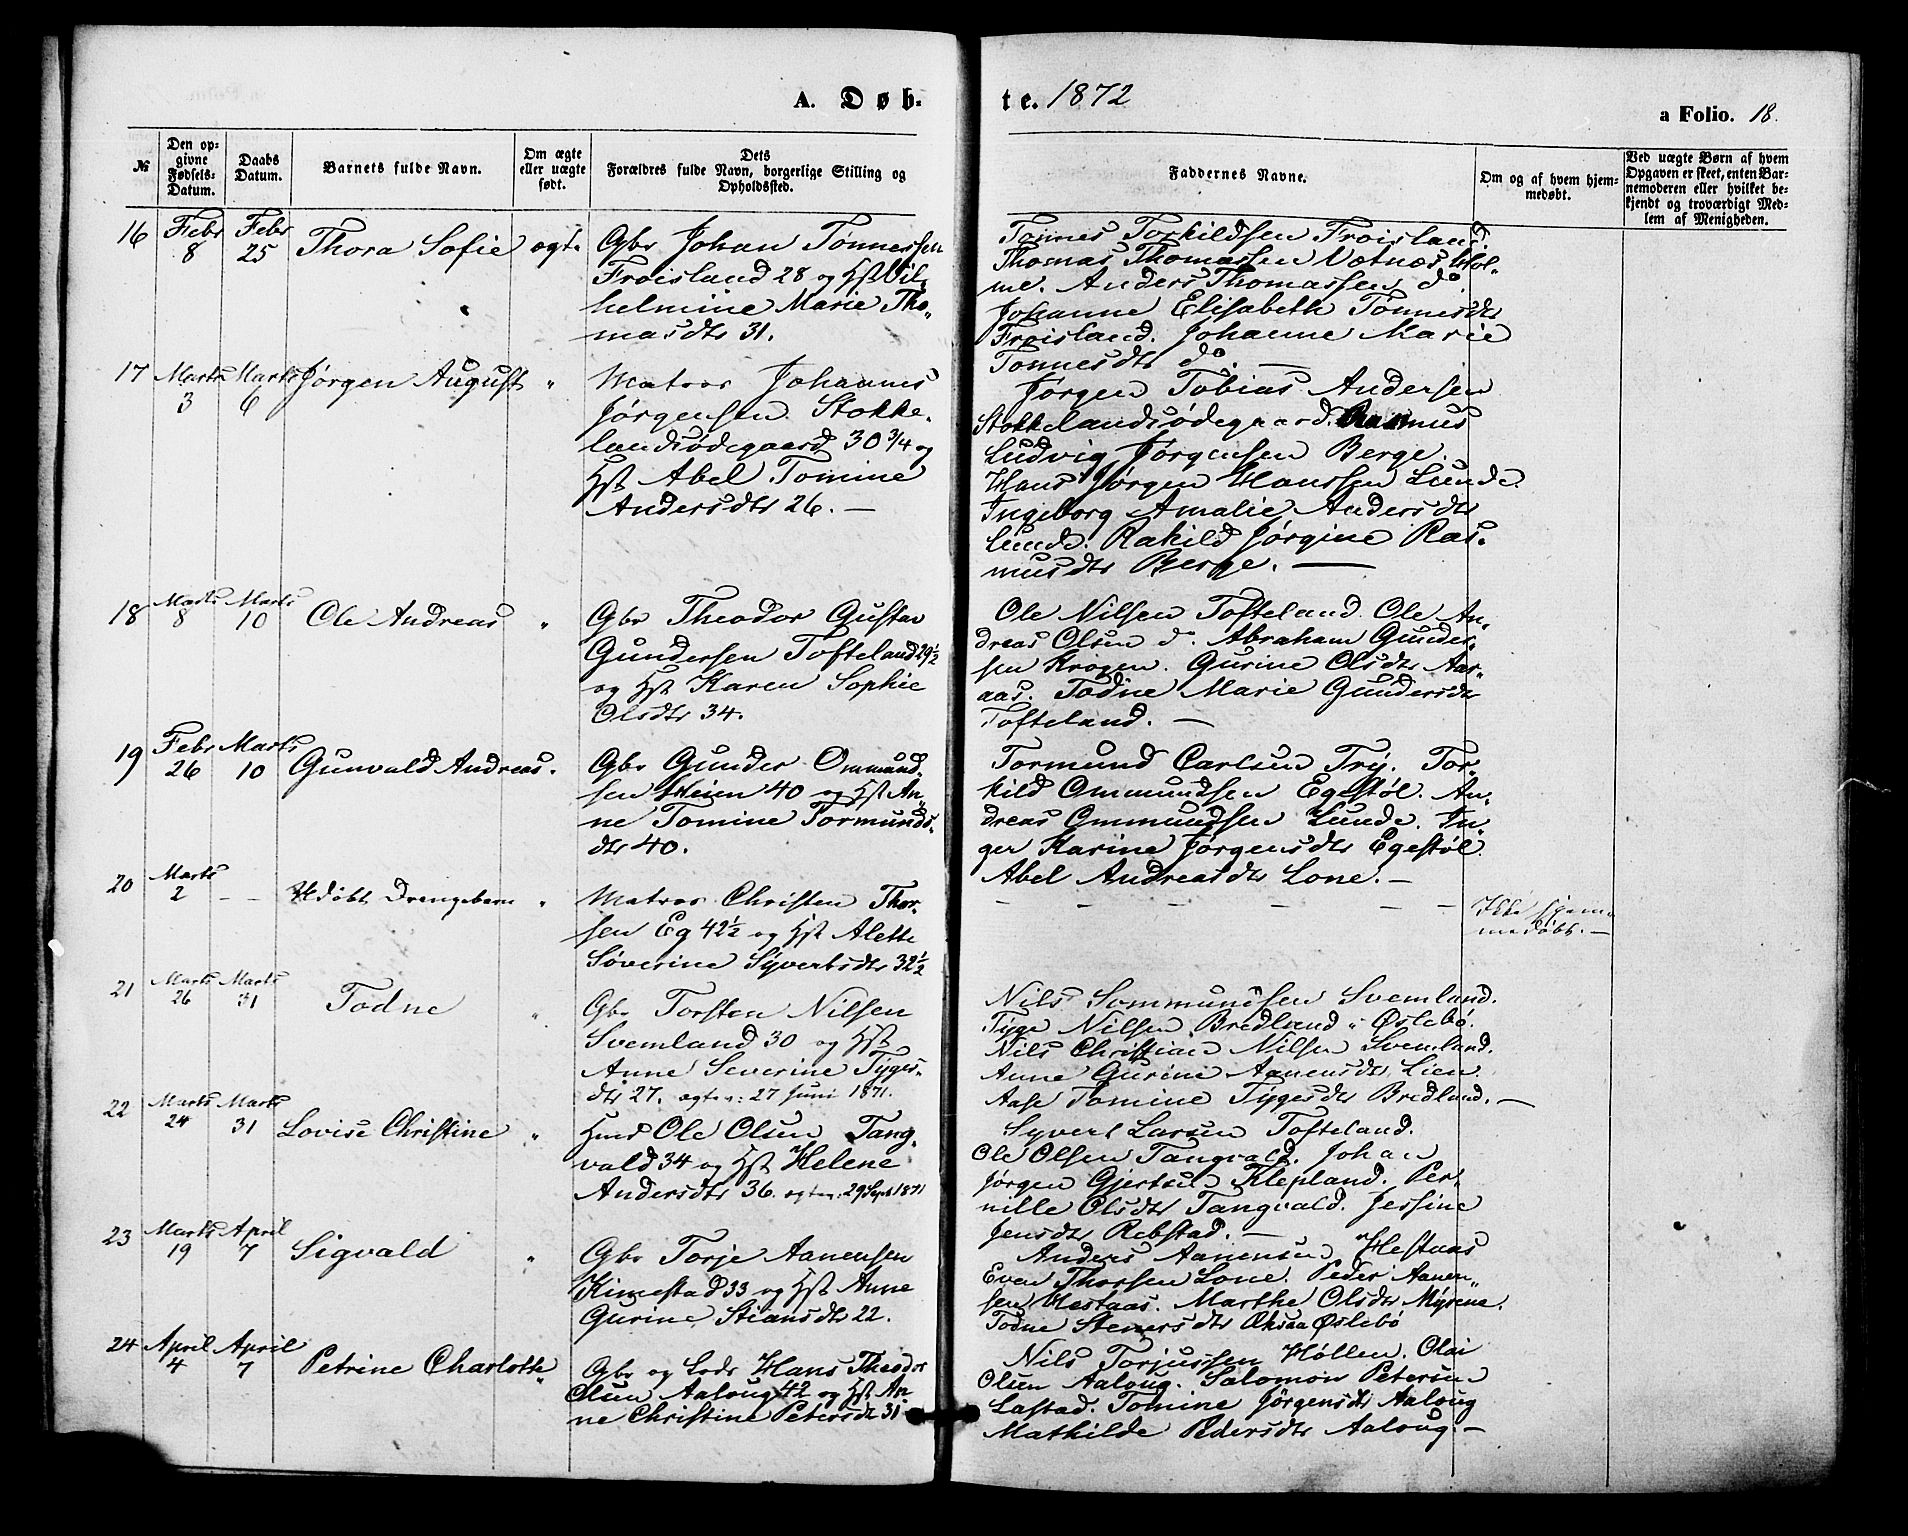 A. Døb-
te. 1872
a Folio. 18.
№
Den op-
givne
Fødsels-
Datum.
Daabs
Datum.
Barnets fulde Navn.
Om ægte
eller uægte
født.
Dets
Forældres fulde Navn, borgerlige Stilling og
Opholdssted.
Faddernes Navne.
Om og af hvem hjem-
medøbt.
Ved uægte Børn af hvem
Opgaven er skeet, enten Bar-
nemoderen eller hvilket be-
kjendt og troværdigt Med-
lem af Menigheden.
16 Febr 8 Febr 25 Thora Sofie ægte
Gbr Johan Tønnessen
Frøisland 28 og Hst Vil-
helmine Marie Tho-
masdtr 31.
Tønnes Torkildsen Frøisland.
Thomas Thomassen Vætnes Hol-
me. Anders Thomassen do.
Johanne Elisabeth Tønnesdtr
Frøisland. Johanne Marie
Tønnesdtr do. —
17 Marts 3 Marts 6 Jørgen August "
Matros Johannes
Jørgensen Stokke-
landsødegaard 30 3/4 og
Hst Abel Tomine
Andersdtr 26. —
Jørgen Tobias Andersen
Stokkelandsødegaard. Rasmus
Ludvig Jørgensen Berge.
Hans Jørgen Hanssen Lunde.
Ingeborg Amalie Andersdtr
Lunde. Rakild Jørgine Ras-
musdtr Berge. —
18 Marts 8 Marts 10 Ole Andreas "
Gbr Theodor Gustav
Gundersen Tofteland 29½
og Hst Karen Sophie
Olsdtr 34.
Ole Nilsen Tofteland. Ole An-
dreas Olsen do. Abraham Gunder-
sen Krogen. Gurine Olsdtr Aar-
aas. Todne Marie Gundersdtr
Tofteland. —
19 Febr 26 Marts 10 Gunvald Andreas "
Gbr Gunder Ommund-
sen Heien 40 og Hst An-
ne Tomine Tormunds-
dtr 40.
Tormund Carlsen Try. Tor-
kild Ommundsen Egestøl. An-
dreas Ommundsen Lunde. In-
ger Karine Jørgensdtr Egestøl.
Abel Andreasdtr Lone. —
20 Marts 2 — — Udøbt Drengebarn "
Matros Christen Thor-
sen Eg 42½ og Hst Alette
Søverine Syvertsdtr 32½
— — — — — —
Ikke hjem-
medøbt. —
21 Marts 26 Marts 31 Todne "
Gbr Torsten Nilsen
Svemland 30 og Hst
Anne Severine Tyges-
dtr 27. egtev: 27 Juni 1871.
Nils Sommundsen Svemland.
Tyge Nilsen Bredland i Øslebø.
Nils Christian Nilsen Svemland.
Anne Gurine Aanensdtr Lien.
Aase Tomine Tygesdtr Bredland. —
22 Marts 24 Marts 31 Lovise Christine "
Hmd Ole Olsen Tang-
vald 34 og Hst Helene
Andersdtr 36. egtev: 29 Sept 1871
Syvert Larsen Tofteland.
Ole Olsen Tangvald. Johan
Jørgen Gjertsen Klepland. Per-
nille Olsdtr Tangvald. Jessine
Jensdtr Rebstad. —
23 Marts 19 April 7 Sigvald "
Gbr Torje Aanensen
Kimestad 33 og Hst Anne
Gurine Stiansdtr 22.
Anders Aanensen Hestaas
Even Thorsen Lone. Peder Aanen-
sen Hestaas. Marthe Olsdtr Myrene.
Todne Stenersdtr Øslebø
24 April 4 April 7 Petrine Charlotte "
Gbr og Lods Hans Theodor
Olsen Aaloug 42 og Hst An-
ne Christine Petersdtr 31
Nils Torjussen Høllen. Olai
Olsen Aaloug. Salomon Petersen
Lastad. Tomine Jørgensdtr Aaloug
Mathilde Pedersdtr Aaloug. —